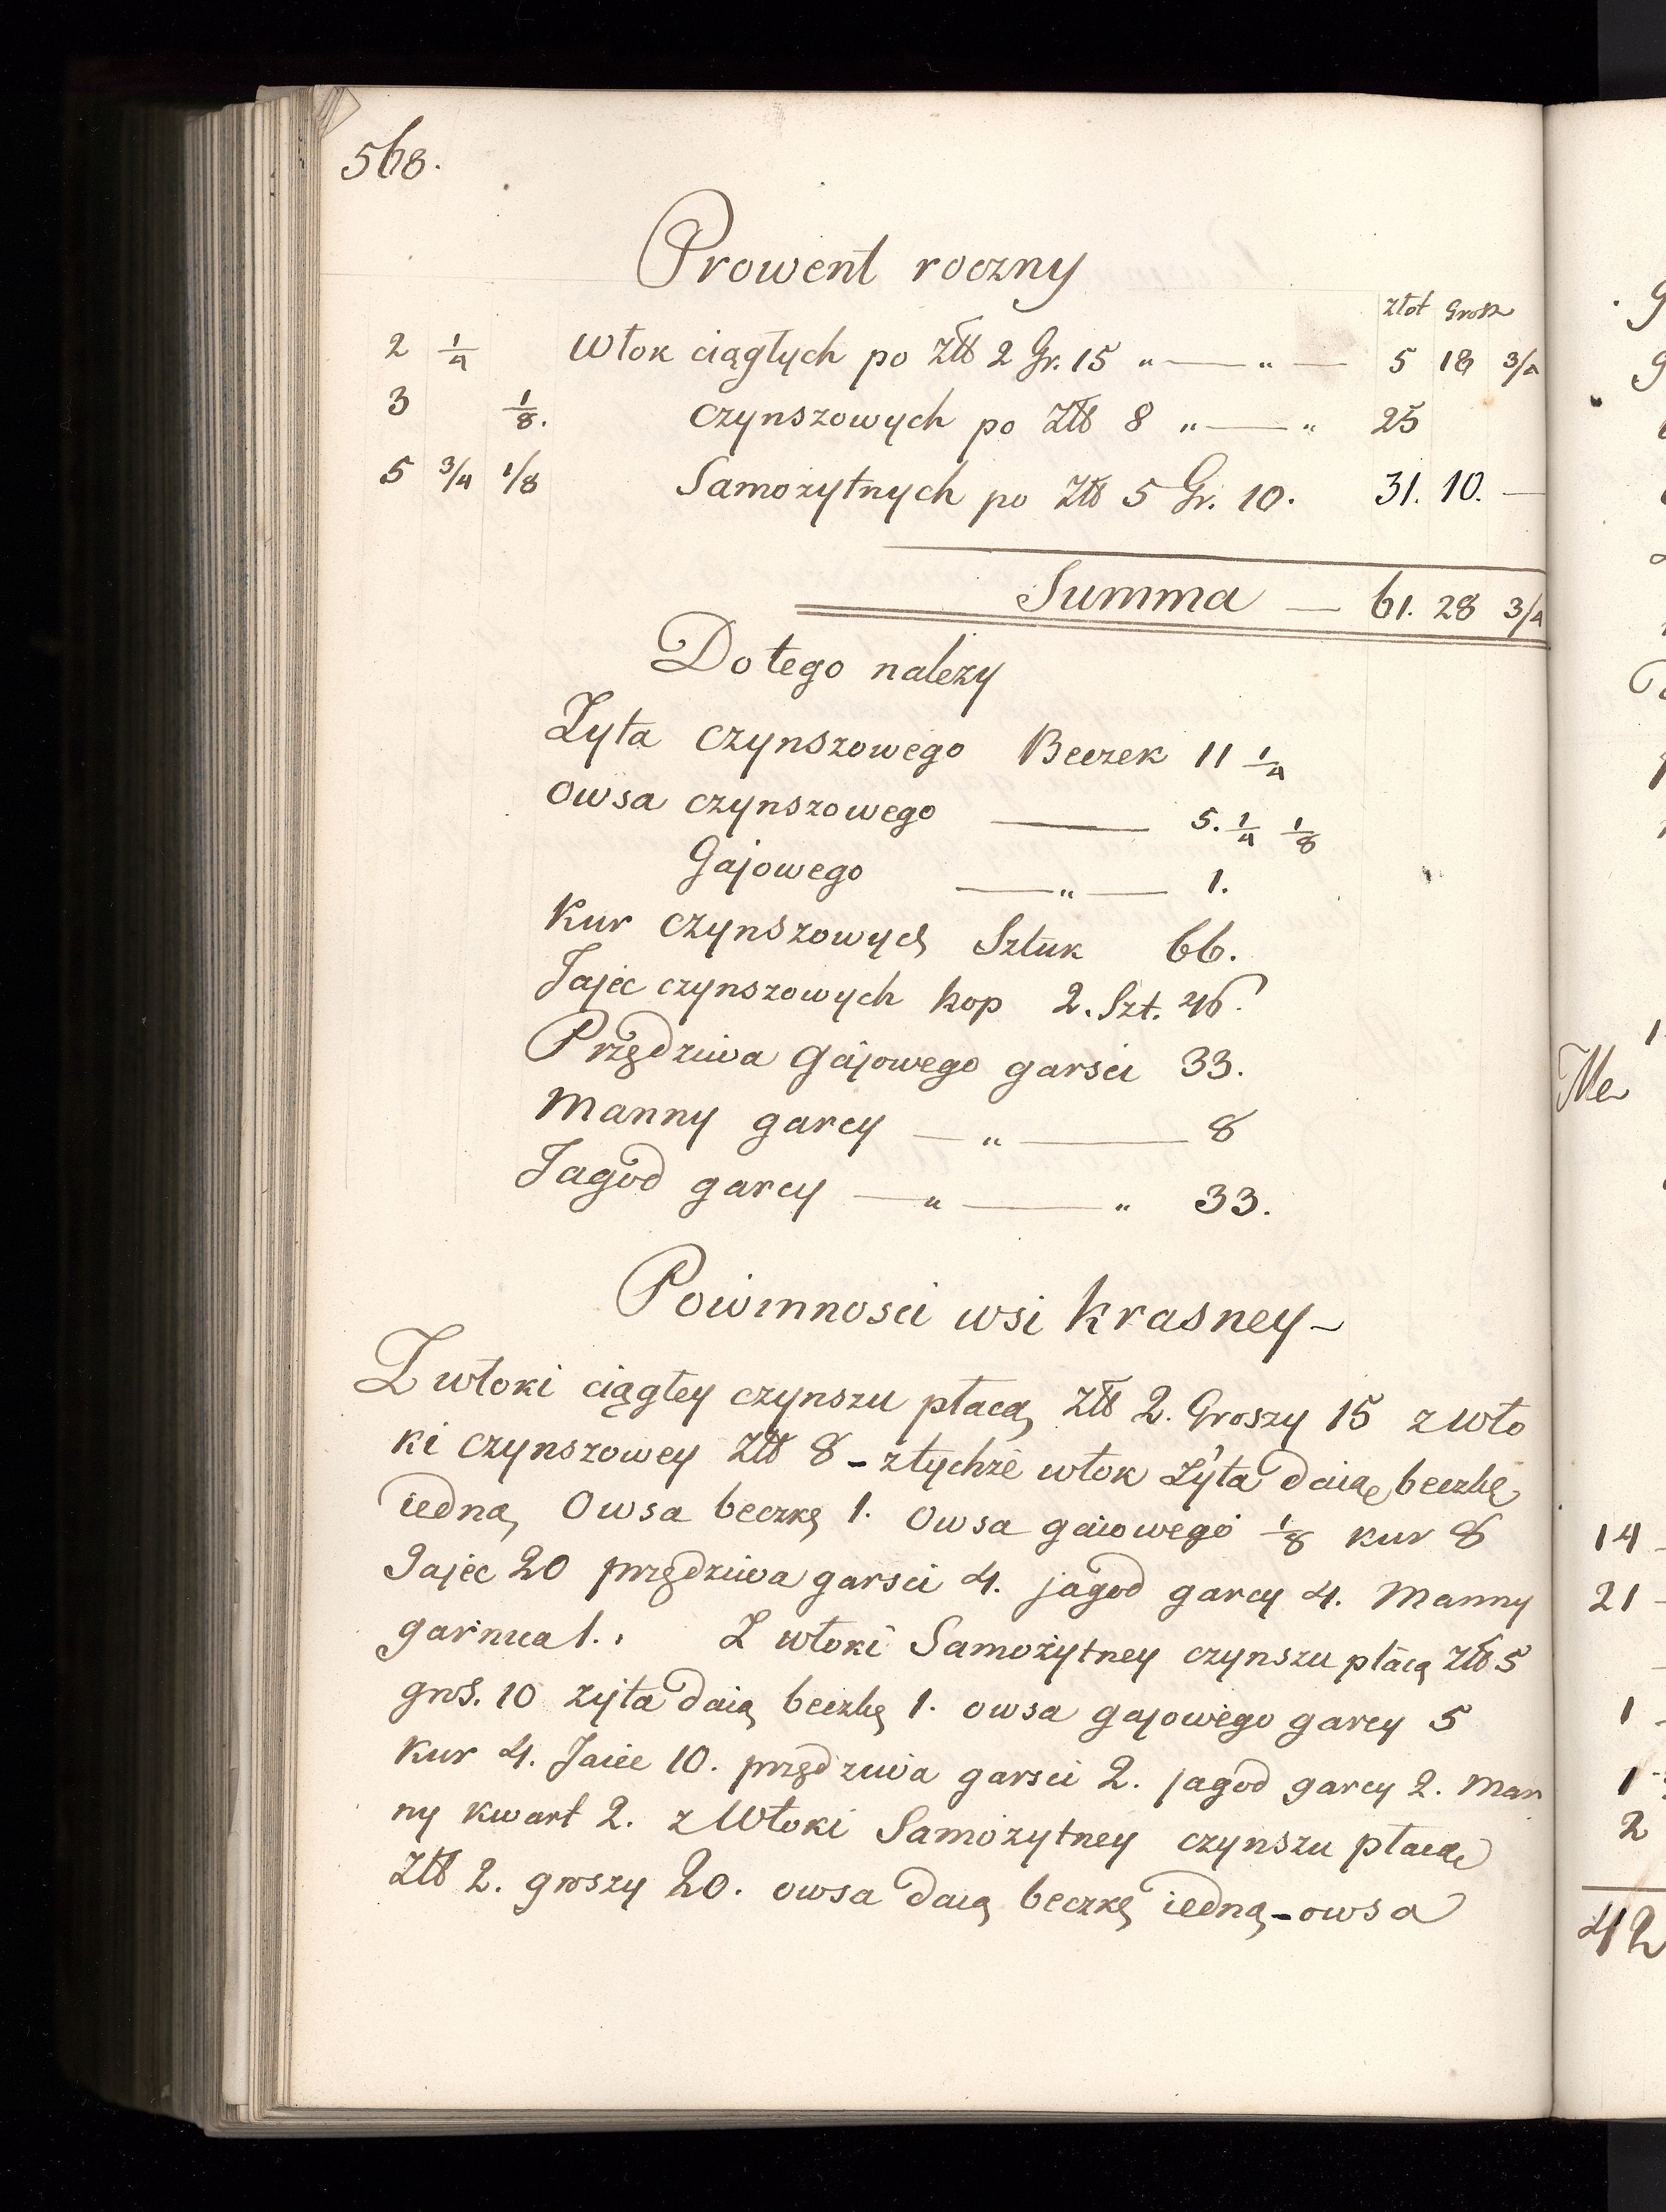 568.
Prowent roczny
Złot Grosz
2 1/4 Włok ciągłych po Złł 2 Gr. 15 „ — „ — 5 18 3/4
3 1/8. czynszowych po Złł 8 „ — „ 25
5 3/4 1/8 Samozytnych po Złł 5 Gr. 10. 31. 10. —
Summa — 61. 28 3/4
Do tego nalezy
Zyta czynszowego Beczek 11 1/4
owsa czynszowego — 5. 1/4 1/8
Gajowego — „ — 1.
Kur czynszowych Sztuk 66.
Jajec czynszowych kop 2. Szt. 46.
Przędziwa Gajowego garsci 33.
Manny garcy — „ — 8
Jagod garcy — „ — „ 33.
Powinnosci wsi Krasney —
Z włoki ciągłey czynszu płacą Złł 2. Groszy 15 z wło
ki czynszowey Złł 8 – z tychże włok Żyta daią beczkę
iedną, Owsa beczkę 1. Owsa gaiowego 1/8 kur 8
Jajec 20 przędziwa garsci 4. jagod garcy 4. Manny
garnca 1. Z włoki Samożytney czynszu płacą Złł 5
groś. 10 żyta daią beczkę 1. owsa gajowego garcy 5
Kur 4. Jaiec 10. przędziwa garsci 2. jagod garcy 2. Man
ny kwart 2. z Włoki Samozytney czynszu płacą
Złł 2. groszy 20. owsa daią beczkę iedną – owsa
Me
14
21
1
1
2
42